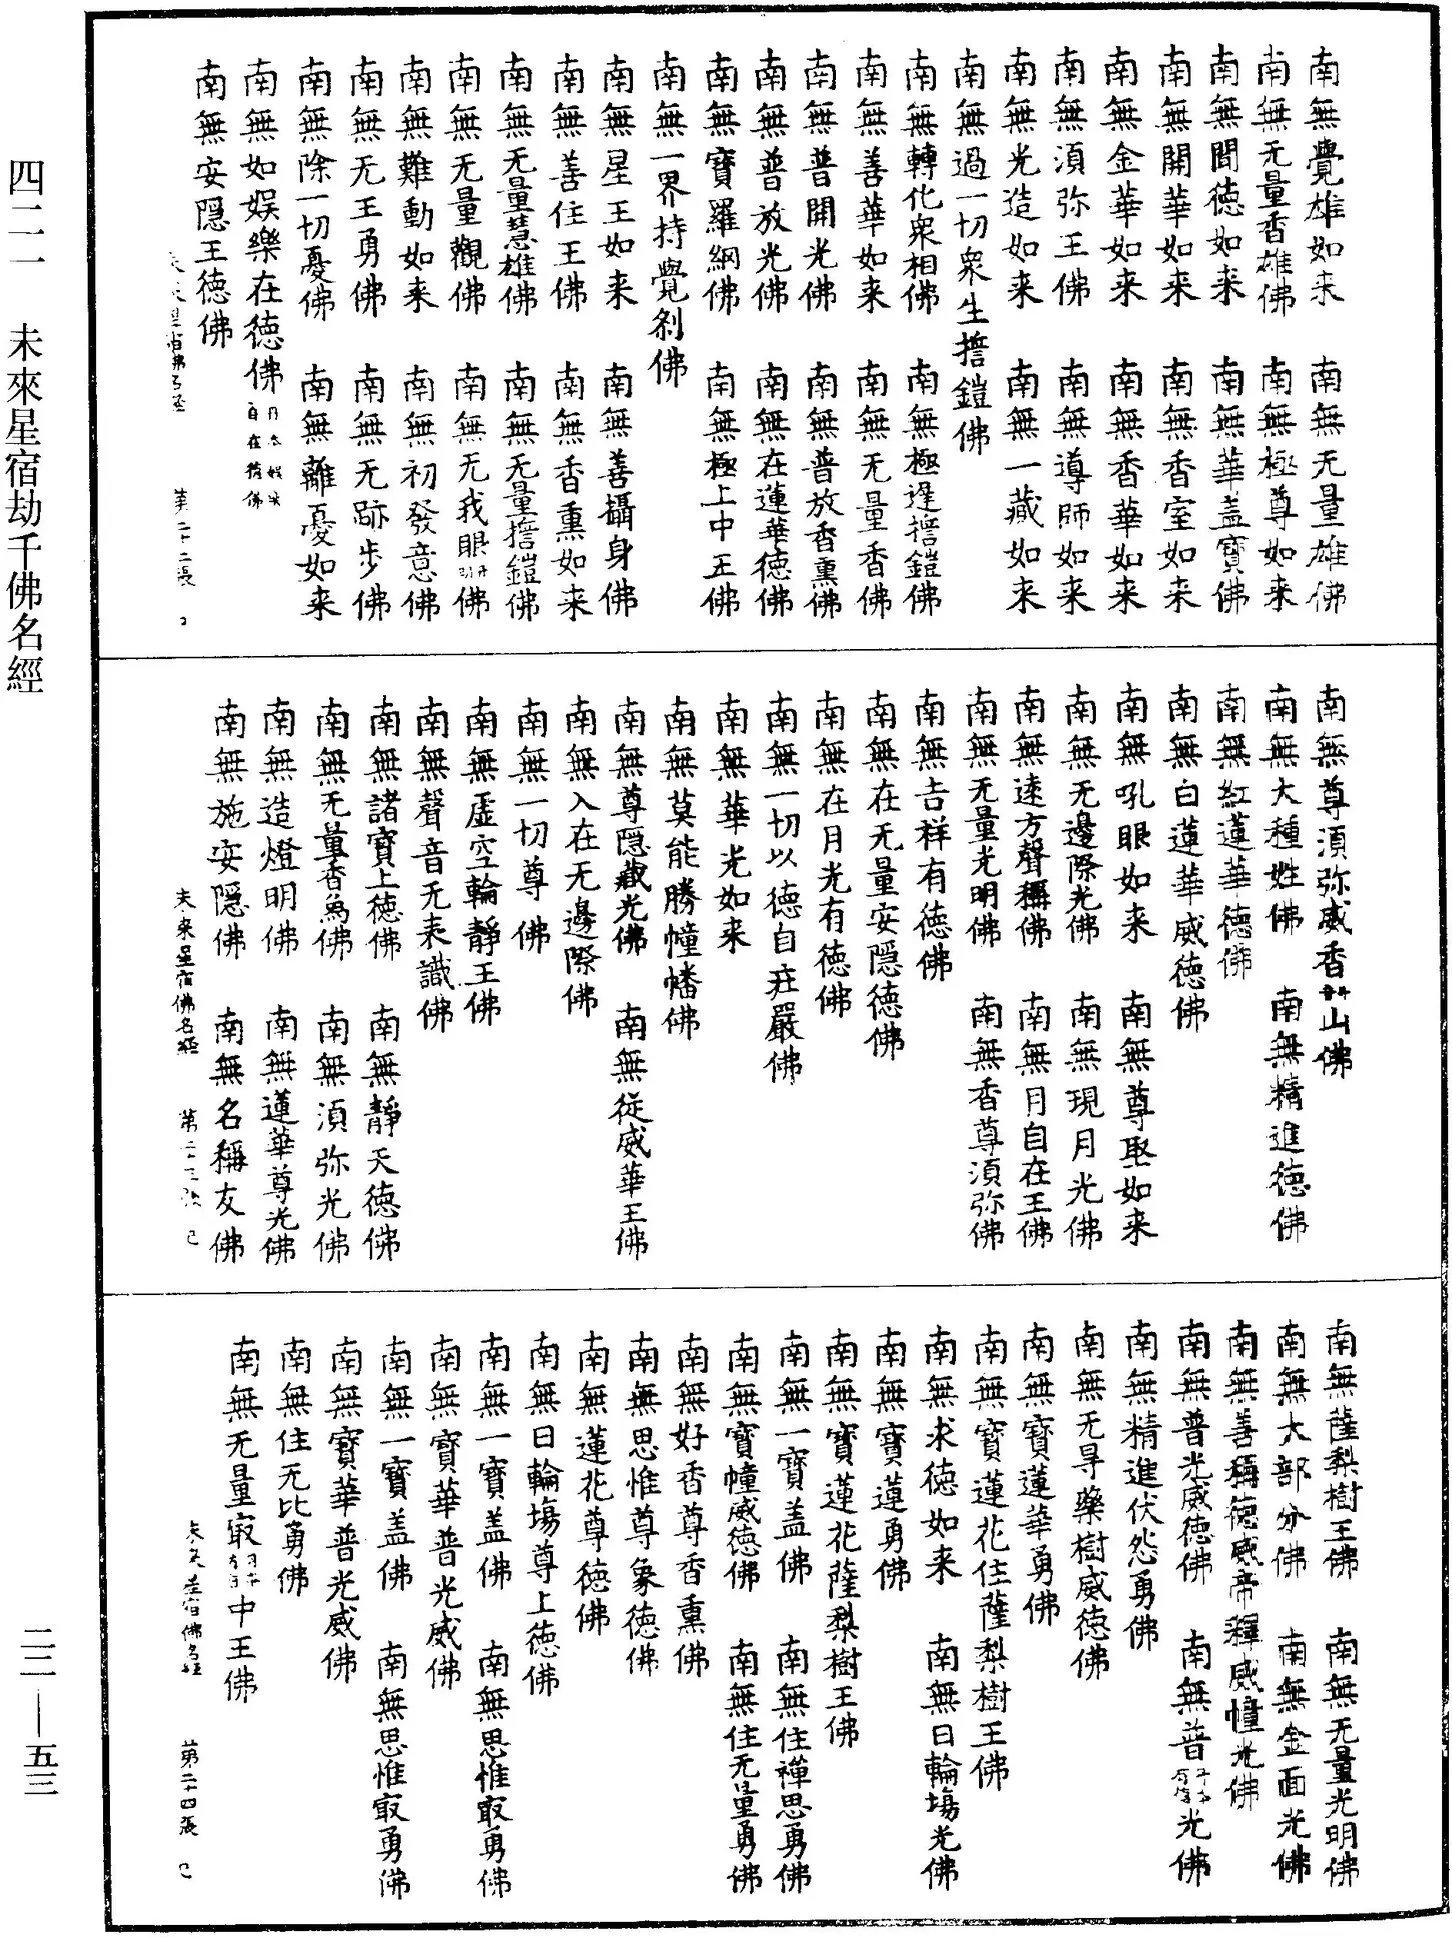 南無覺雄如来　南無无量雄佛
南無无量香雄佛　南無極尊如来
南無閻徳如来　南無華盖寶佛
南無開華如来　南無香室如来
南無金華如来　南無香華如来
南無湏弥王佛　南無導師如来
南無光造如来　南無一藏如来
南無過一切衆生擔鎧佛
南無轉化衆相佛　南無極遅擔鎧佛
南無善華如来　南無无量香佛
南無普開光佛　南無普放香熏佛
南無普放光佛　南無在蓮華徳佛
南無寶羅網佛　南無極上中王佛
南無一界持覺刹佛
南無星王如来　南無善攝身佛
南無善住王佛　南無香熏如来
南無无量慧雄佛　南無无量擔鎧佛
南無无量觀佛　南無无我眼佛
南無難動如来　南無初發意佛
南無无王勇佛　南無无跡步佛
南無除一切憂佛　南無離憂如来
南無如娱樂在徳佛
南無安隱王徳佛
南無尊湏弥威香山佛
南無大種姓佛　南無精進徳佛
南無紅蓮華徳佛
南無白蓮華威徳佛
南無吼眼如来　南無尊聚如来
南無无邊際光佛　南無現月光佛
南無逺方聲稱佛　南無月自在王佛
南無无量光明佛　南無香尊湏弥佛
南無吉祥有徳佛
南無在无量安隱徳佛
南無在月光有徳佛
南無一切以徳自莊嚴佛
南無華光如来
南無莫能勝幢幡佛
南無尊隱藏光佛　南無従威華王佛
南無入在无邊際佛
南無一切尊佛
南無虛空輪靜王佛
南無聲音无表識佛
南無諸寶上徳佛　南無靜天徳佛
南無无量香象佛　南無湏弥光佛
南無造燈明佛　南無蓮華尊光佛
南無施安隱佛　南無名稱友佛
未来星宿佛名經　第二十三張
南無薩梨樹王佛　南無无量光明佛
南無大部分佛　南無金面光佛
南無善稱徳威帝釋威幢光佛
南無普光威徳佛　南無普光佛
南無精進伏怨勇佛
南無无㝵藥樹威徳佛
南無寶蓮華勇佛
南無寶蓮花住薩梨樹王佛
南無求徳如来　南無日輪塲光佛
南無寶蓮勇佛
南無寶蓮花薩梨樹王佛
南無一寶盖佛　南無住禪思勇佛
南無寶幢威徳佛　南無住无量勇佛
南無好香尊香熏佛
南無思惟尊象徳佛
南無蓮花尊徳佛
南無日輪塲尊上徳佛
南無一寶盖佛　南無思惟㝡勇佛
南無寶華普光威佛
南無一寶盖佛　南無思惟㝡勇佛
南無寶華普光威佛
南無住无比勇佛
南無无量㝡中王佛
未来星宿佛名經　第二十四張
四二一　未來星宿劫千佛名經
二二—五三